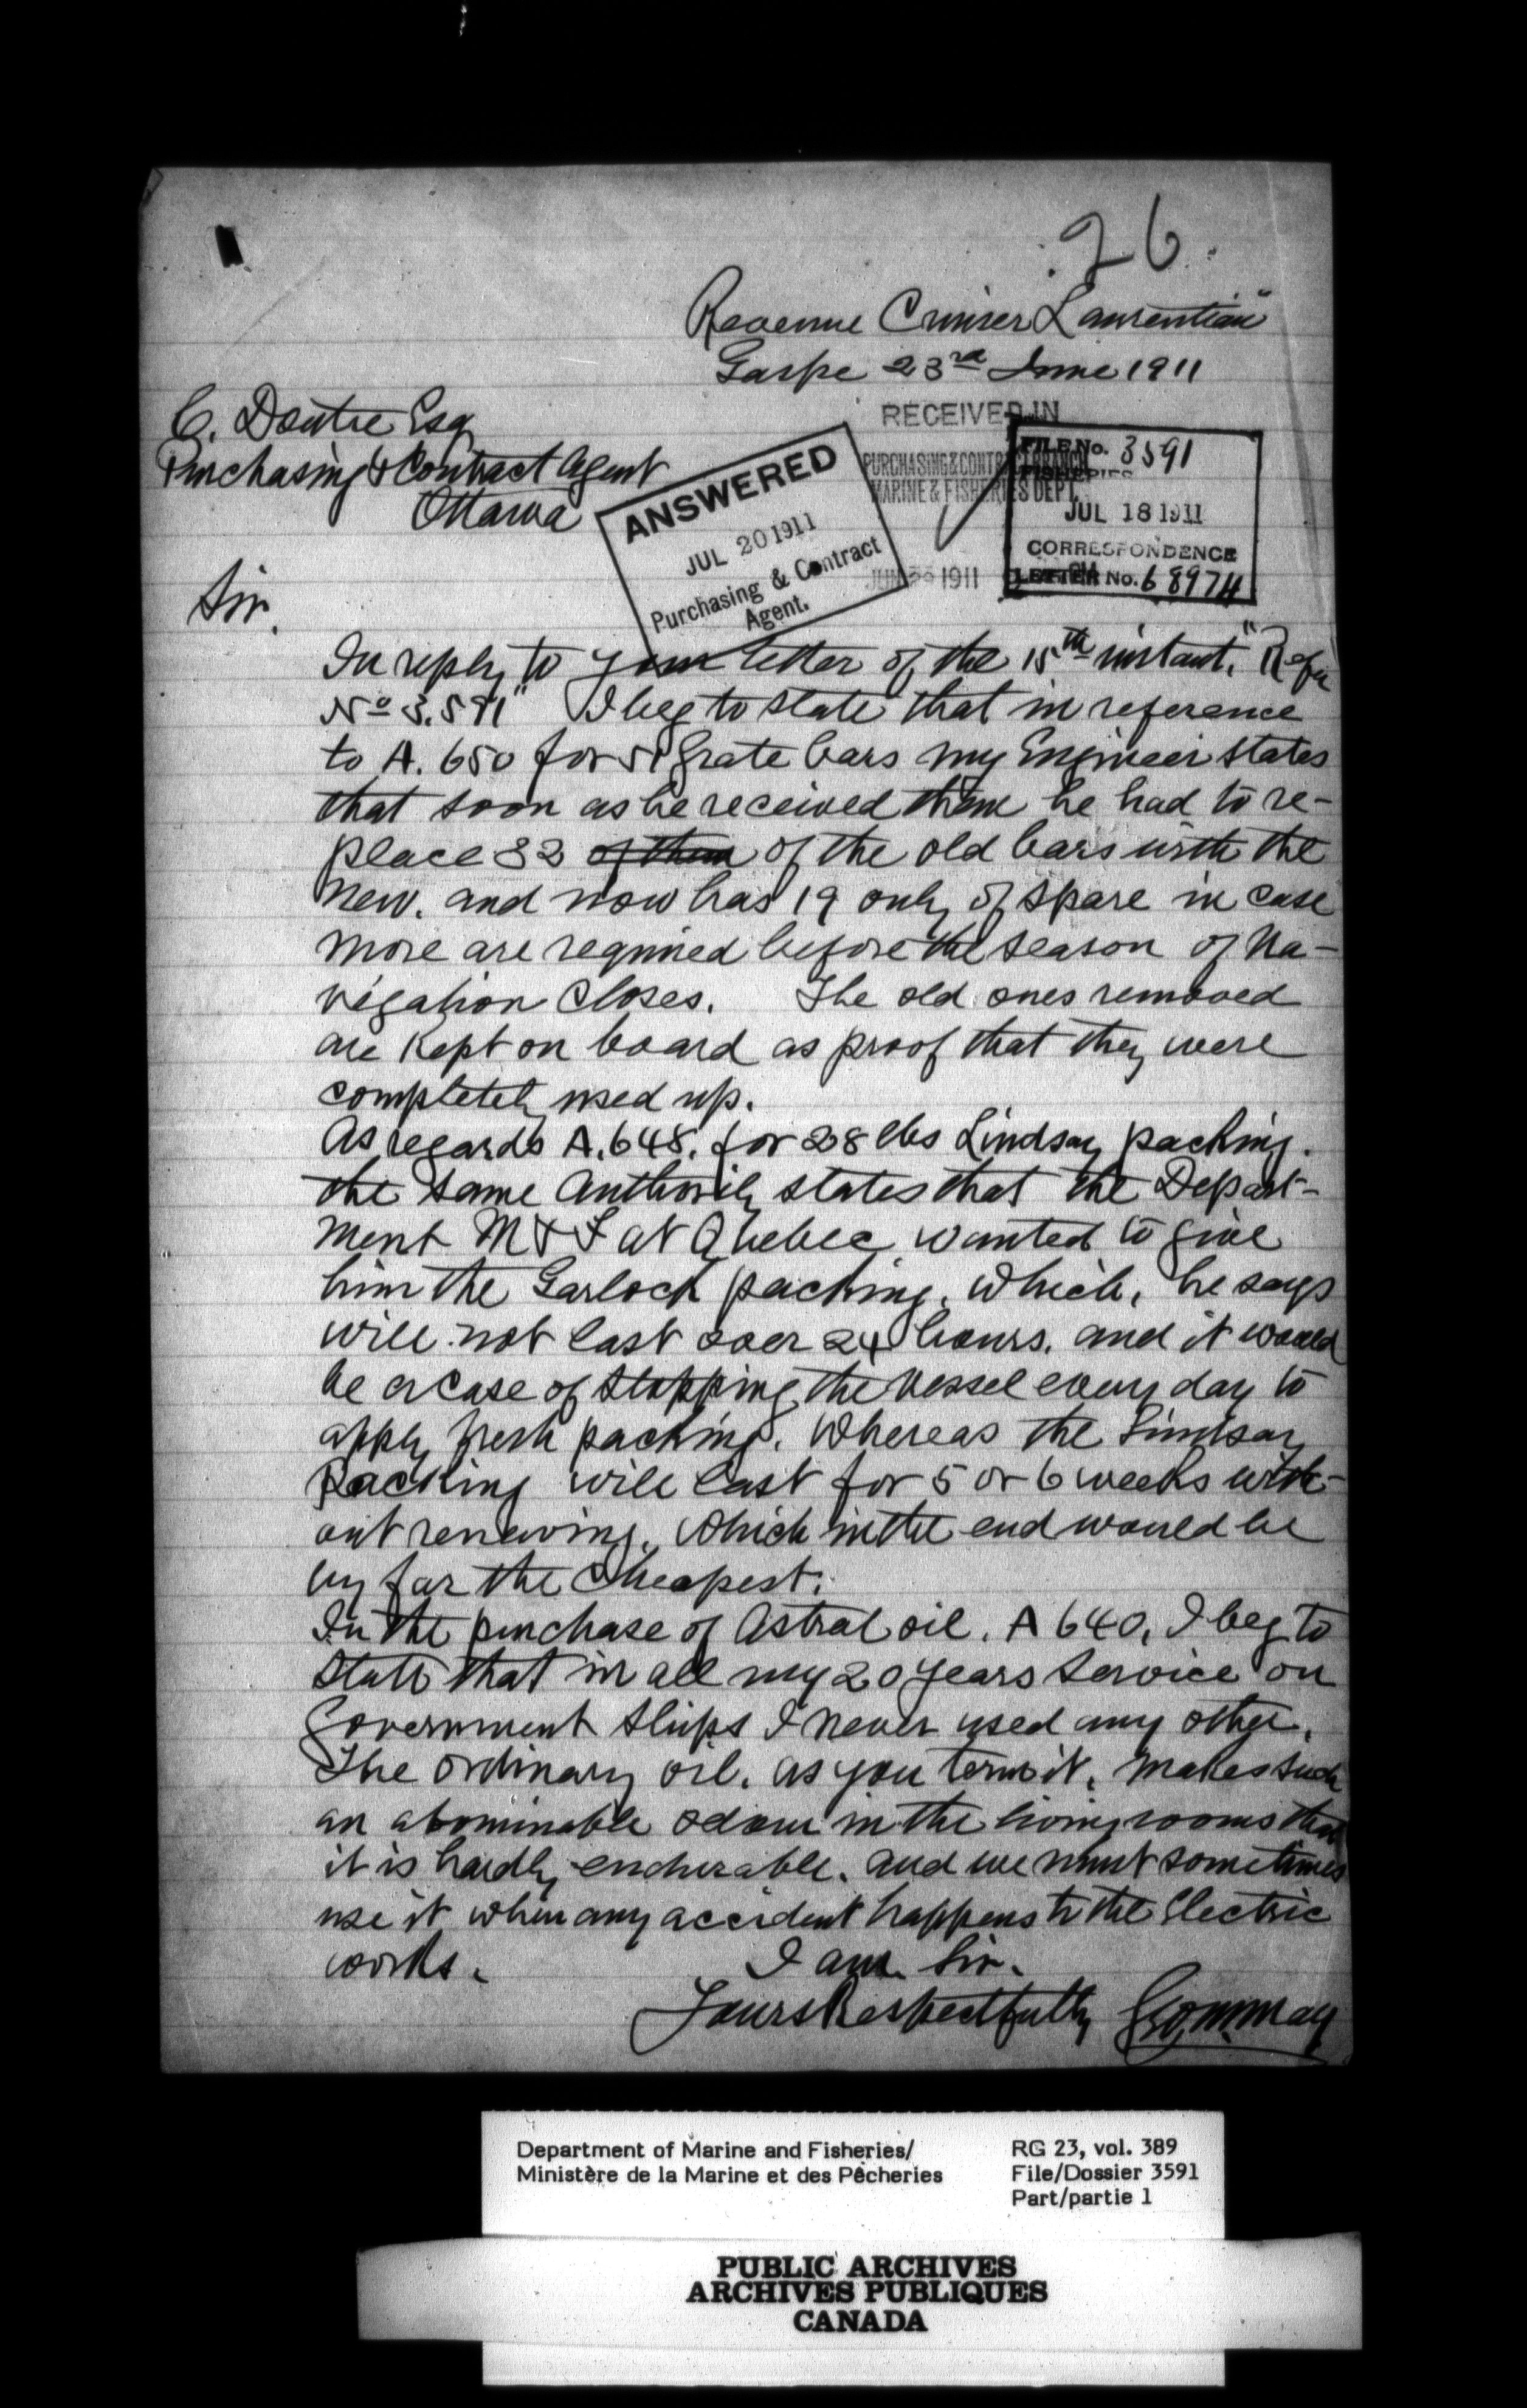 26.
Revenue Cruiser Laurentian"
Gaspe 23rd June 1911
C. Doutre Esq
Purchasing & Contract Agent
Ottawa
RECEIVED IN
PURCHASING & CONTRACT BRANCH
MARINE & FISHERIES DEPT.
1911
ANSWERED
JUL 20 1911
Purchasing & Contract
Agent.
FILE No. 3591
FISHERIES
JUL 18 1911
CORRESPONDENCE
LETTER No. 68974
Sir.
In reply to your letter of the 15th instant. "Refer
No 3.591" I beg to state that in reference
to A. 650 for 51 Grate bars my Engineer states
that soon as he received them he had to re-
place 32 of them of the old bars with the
new. and now has 19 only of spare in case
more are required before the season of Na-
vigation closes. The old ones removed
are kept on board as proof that they were
completely used up.
As regards A.648. for 28 lbs Lindsay packing.
the same Authority states that the Depart-
ment M & F at Quebec wanted to give
him the Garlock packing. which, he says
will not last over 24 hours. and it would
be a case of stopping the vessel every day to
apply fresh packing. Whereas the Lindsay
Packing will last for 5 or 6 weeks with-
out renewing. which in the end would be
by far the cheapest.
In the purchase of Astral oil. A 640, I beg to
state that in all my 20 years service on
Government Ships I never used any other.
The ordinary oil. as you term it, makes such
an abominable odour in the living rooms that
it is hardly endurable. and we must sometimes
use it when any accident happens to the Electric
works.
I am Sir.
Yours Respectfully Geo. M. May
Department of Marine and Fisheries/
Ministère de la Marine et des Pêcheries
RG 23, vol. 389
File/Dossier 3591
Part/partie 1
PUBLIC ARCHIVES
ARCHIVES PUBLIQUES
CANADA